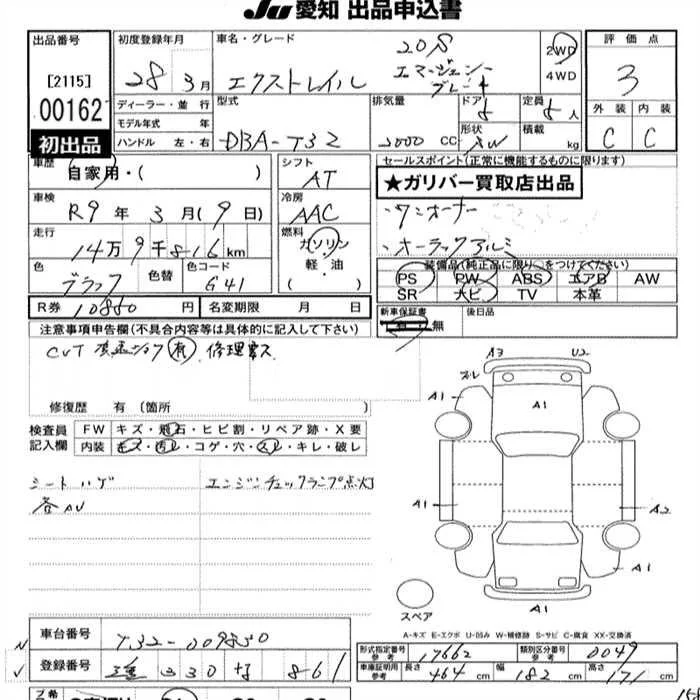 JU 愛知 出品申込書
出品番号
[2115]
00162
初出品
初度登録年月
28年 3月
車名・グレード
エクストレイル
20S
エマージェンシー
ブレーキ
2WD
4WD
評価点
3
外装 内装
C C
ディーラー・並行
モデル年式 年
ハンドル 左・右
型式
DBA-T32
排気量
2000 CC
ドア
5
形状
SW
定員
5人
積載
kg
車歴
自家用・( )
シフト
AT
セールスポイント(正常に機能するものに限ります)
★ガリバー買取店出品
・ワンオーナー
・オーラックアルミ
車検
R9年 3月(9日)
冷房
AAC
走行
14万9千816km
燃料
ガソリン
軽・油
色
ブラック
色替
色コード
G41
装備品(純正品に限り○をつけてください)
PS PW ABS エアB AW
SR ナビ TV 本革
R券 10850円
名変期限 月 日
新車保証書
有 無
後日品
注意事項申告欄(不具合内容等は具体的に記入して下さい)
CVT 変速ショック有 修理要ス
修復歴 有 [箇所
検査員
記入欄
FW キズ・飛石・ヒビ割・リペア跡・X要
内装 キズ・汚レ・コゲ・穴・スレ・キレ・破レ
シートハゲ
各AU
エンジンチェックランプ点灯
A3 U2
ズレ
A1 A1 A1
A1 A2
A1
A1
スペア
A-キズ E-エクボ U-凹み W-補修跡 S-サビ C-腐食 XX-交換済
車台番号 T32-009850
登録番号 330 861
型式指定番号
参考
17662
類別区分番号
参考
0049
車庫証明用
参考
長さ 464 cm 幅 182 cm 高さ 171 cm